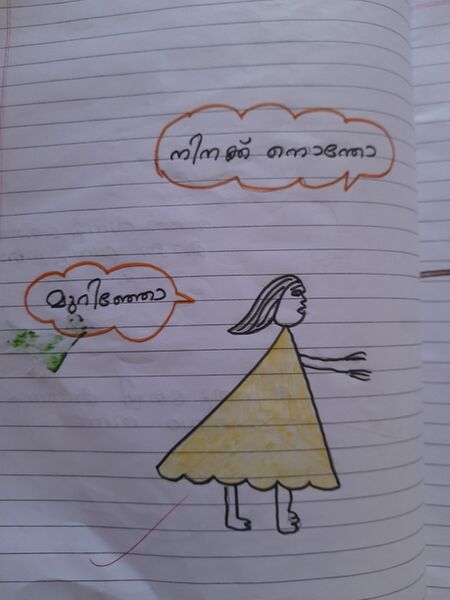 നിനക്ക് നൊന്തോ
മുറിഞ്ഞോ